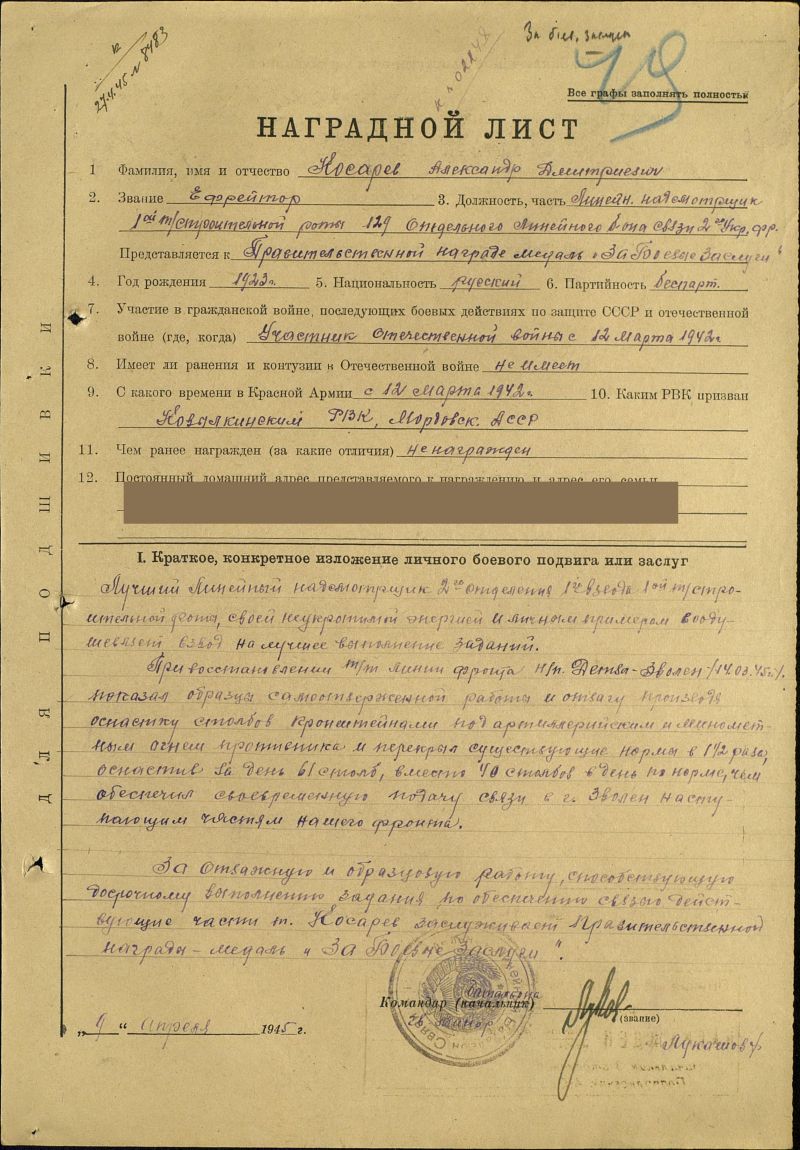 27.4.45 № 8483
За боев. заслуги
49
Все графы заполнять полностью
НАГРАДНОЙ ЛИСТ
1 Фамилия, имя и отчество Косарев Александр Дмитриевич
2. Звание Ефрейтор 3. Должность, часть Линейн. надсмотрщик
1ой т/строительной роты 129 Отдельного Линейного б-она связи 2го Укр. фр.
Представляется к Правительственной награде медаль „За Боевые Заслуги“
4. Год рождения 1923 г. 5. Национальность русский 6. Партийность беспарт.
7. Участие в гражданской войне, последующих боевых действиях по защите СССР и отечественной
войне (где, когда) Участник Отечественной войны с 12 марта 1942 г.
8. Имеет ли ранения и контузии в Отечественной войне не имеет
9. С какого времени в Красной Армии с 12 марта 1942 г. 10. Каким РВК призван
Ковылкинским РВК, Мордовск. АССР
11. Чем ранее награжден (за какие отличия) не награжден
12. Постоянный домашний адрес представляемого к награждению и адрес его семьи
I. Краткое, конкретное изложение личного боевого подвига или заслуг
Лучший Линейный надсмотрщик 2го отделения 1го взвода 1ой т/стро-
ительной роты, своей неукротимой энергией и личным примером вооду-
шевляет взвод на лучшее выполнение заданий.
При восстановлении т/т линии фронта н/п. Детва-Зволен /14.03.45 г./
показал образцы самоотверженной работы и отвагу производя
оснастку столбов кронштейнами под артиллерийским и миномет-
ным огнем противника и перекрыл существующие нормы в 1 1/2 раза,
оснастив за день 61 столб, вместо 40 столбов в день по норме, чем
обеспечил своевременную подачу связи в г. Зволен насту-
пающим частям нашего фронта.
За отважную и образцовую работу, способствующую
досрочному выполнению задания по обеспечению связью дейст-
вующие части т. Косарев заслуживает Правительственной
награды – медаль „За Боевые Заслуги“.
Командир (начальник) батальона
(звание)
„9“ апреля 1945 г.
Лукашов
ДЛЯ ПОДШИВКИ